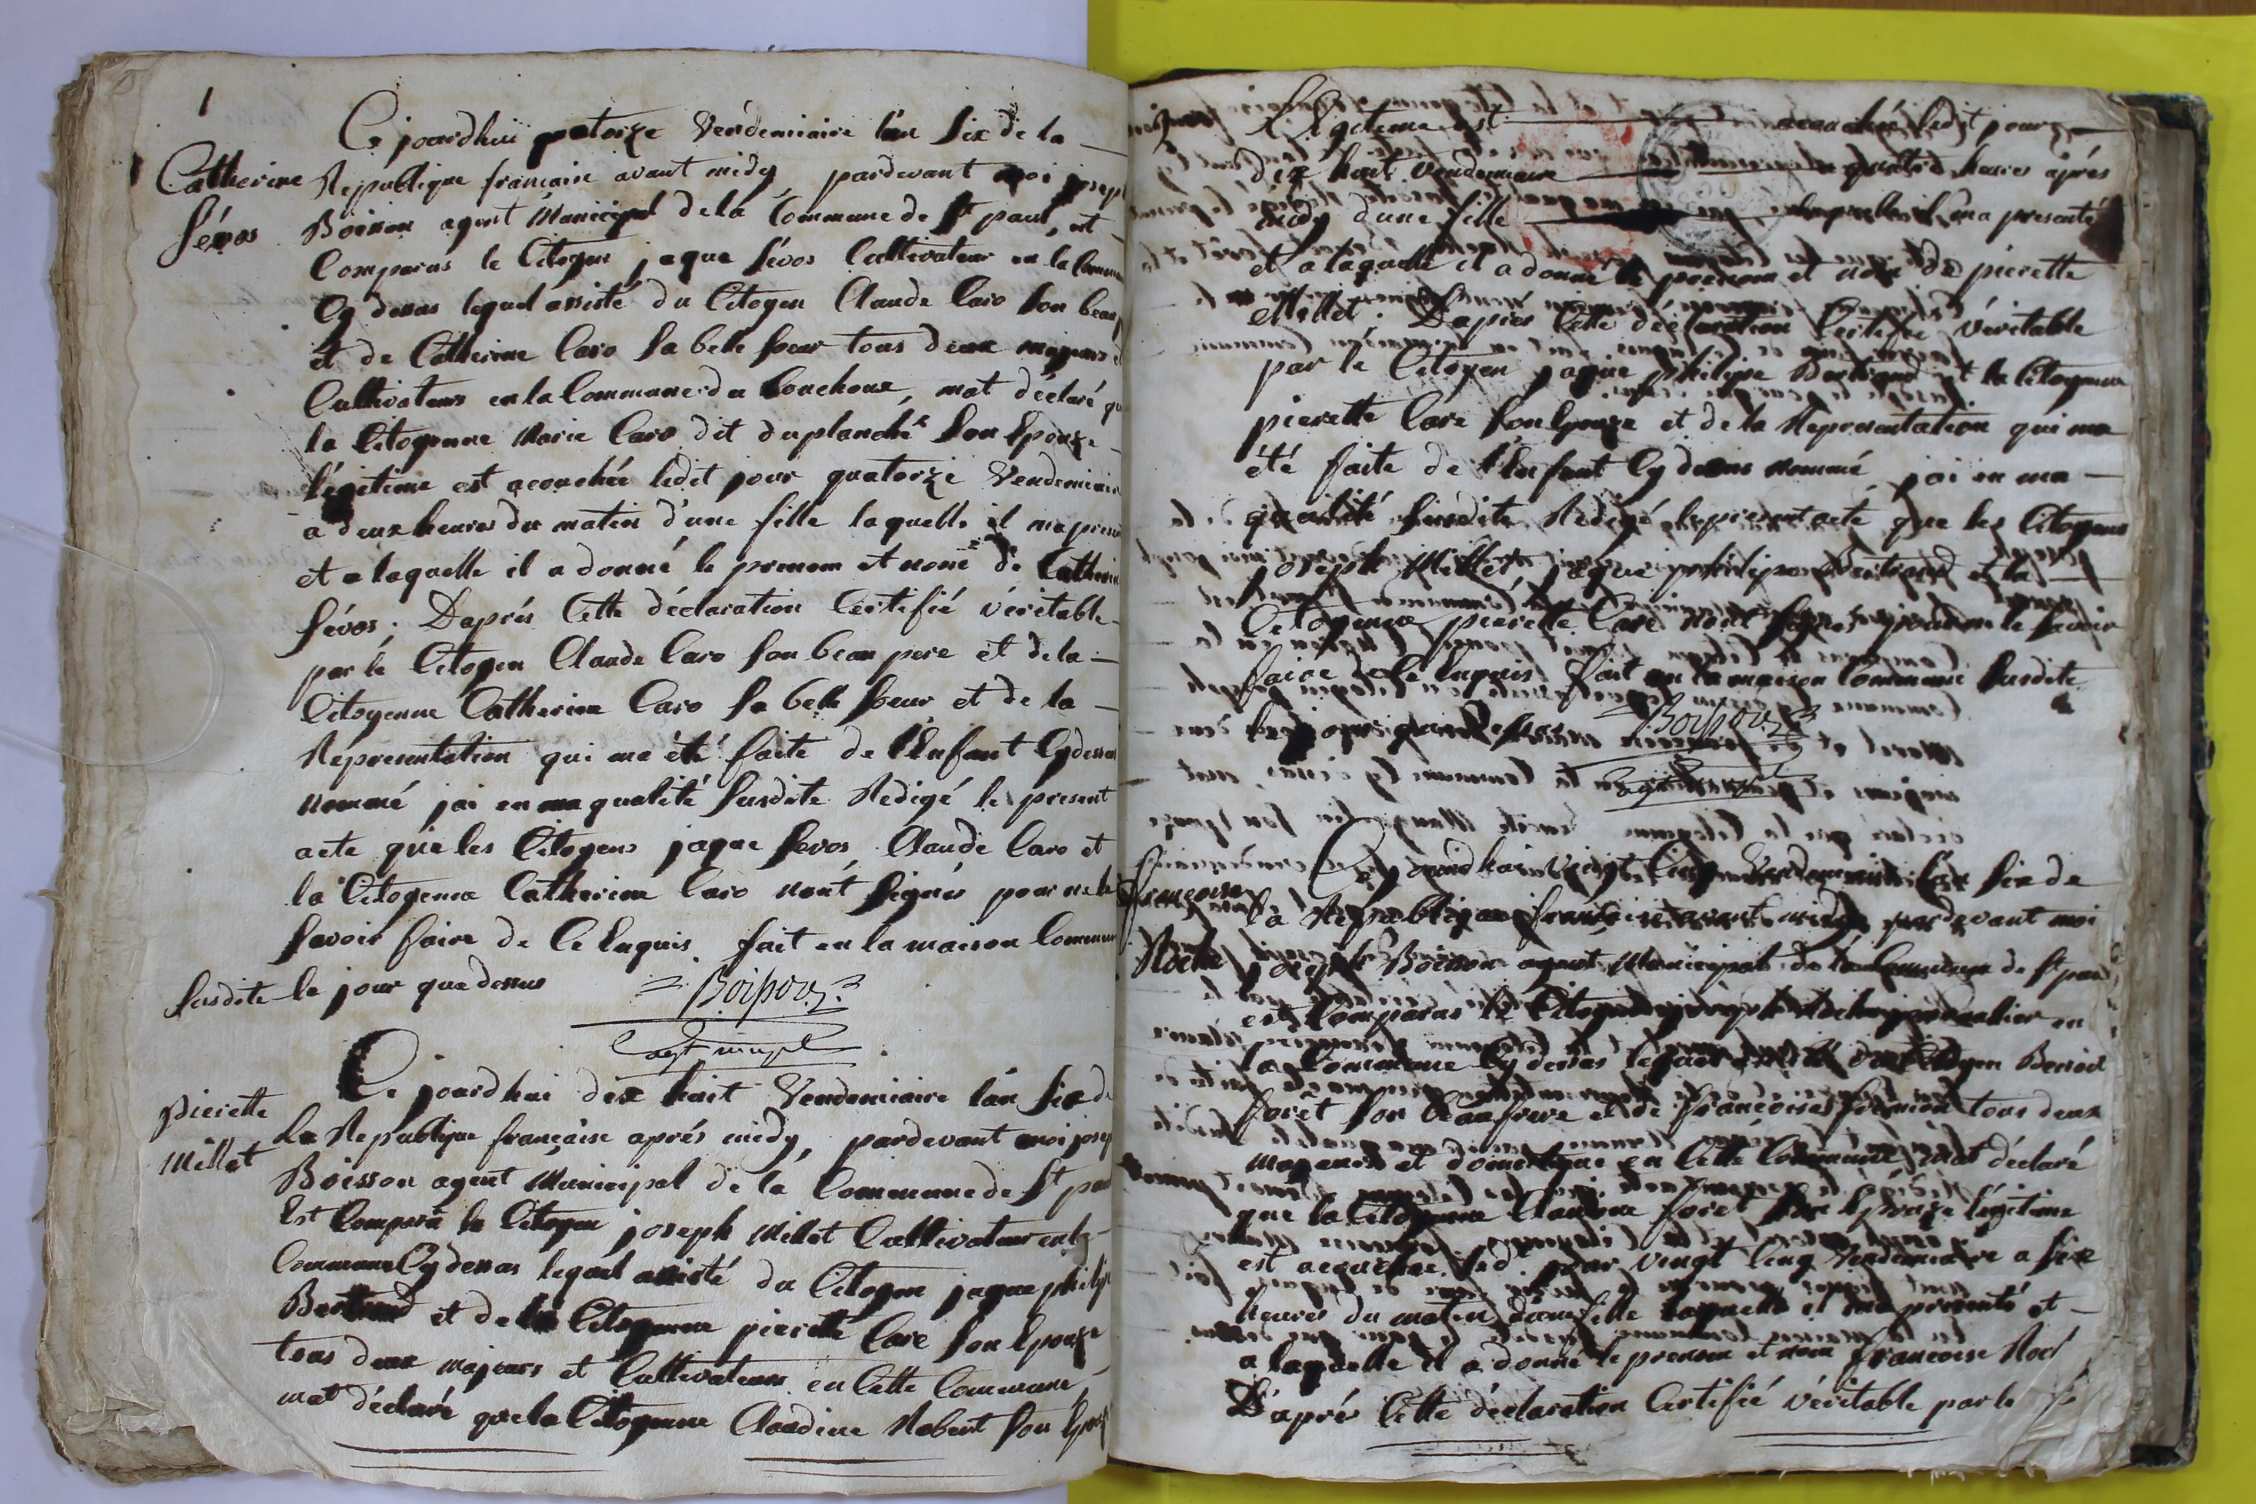 1
Ce jourdhuii patorze Vendemiaire lan six de la
Catherine
Sévos
Republique francaise avant midy, pardevant moi josep
Boisson agent Municipal dela Commune de St paul, est
Comparus le Citoyen jaque Sévos Cultivateur en la Commune
Cy dessus lequel assisté du Citoyen Claude Caro son beau p
et de Catherine Caro sa belle soeur tous deux majeurs e
Cultivateurs en la Commune du Couchoux, mat déclaré que
la Citoyenne Marie Caro dit duplanché son Epouze
légitime est acouchée ledit jour quatorze Vendemiaire
a deux heures du matin d'une fille laquelle il ma presen
et a laquelle il a donné le prenom et nom de Catherine
Sévos. Daprés Cette déclaration Certifié véritable
par le Citoyen Claude Caro son beau pere et de la
Citoyenne Catherine Caro sa belle soeur et de la
Representation qui ma été faite de l'Enfant Cydessus
nommé jai en ma qualité susdite Redigé le present
acte que les Citoyens jaque Sevos Claude Caro et
la Citoyenne Catherine Caro nont signés pour ne le
savoir faire de Ce Enquis. fait en la maison Commune
susdite le jour que dessus
Boisson
agt mupl
Ce jourdhui dix huit Vendemiaire lan six de
pierette
Millet
La Republique française aprés midy, pardevant moi josep
Boisson agent Municipal de la Commune de St pau
Est Comparu le Citoyen joseph Millet Cultivateur en la
Commune Cy dessus lequel assisté du Citoyen jaque philipe
Bertrand et de la Citoyenne pierette Care son Epouze
tous deux majeurs et Cultivateurs en Cette Commune,
mat déclaré que la Citoyenne Claudine Robert son Epouz
légitime est acouchée ledit jour
dix huit Vendemiaire quatre heures aprés
midy d'une fille laquelle il ma presenté
et a laquelle il a donné le prenom et nom de pierette
Millet. Daprés Cette déclaration Certifié véritable
par le Citoyen jaque philipe Bertrand et la Citoyenne
pierette Care son Epouze et de la Representation qui ma
été faite de l'Enfant Cy dessus nommé jai en ma
qualité susdite Redigé le present acte que les Citoyens
joseph Millet, jaque philipe Bertrand et la
Citoyenne pierette Care nont signés pour ne le savoir
faire de Ce Enquis. fait en la maison Commune susdite
le jour que dessus
Boisson
agt mupl
Ce jourdhui vingt Cinq Vendemiaire lan six de
francoise
Roche
la Republique francaise avant midy pardevant moi
joseph Boisson agent Municipal de la Commune de St paul
est Comparus le Citoyen joseph Roche journalier en
la Commune Cy dessus lequel assisté du Citoyen Benoit
foret son beau frere et de francoise tous deux
majeurs et domestique en Cette Commune, mat déclaré
que la Citoyenne Claudine foret son Epouze légitime
est acouchée led. jour vingt Cinq Vendemiaire a six
heures du matin d'une fille laquelle il ma presenté et
a laquelle il a donné le prenom et nom francoise Roch
D'aprés Cette déclaration Certifié véritable par le